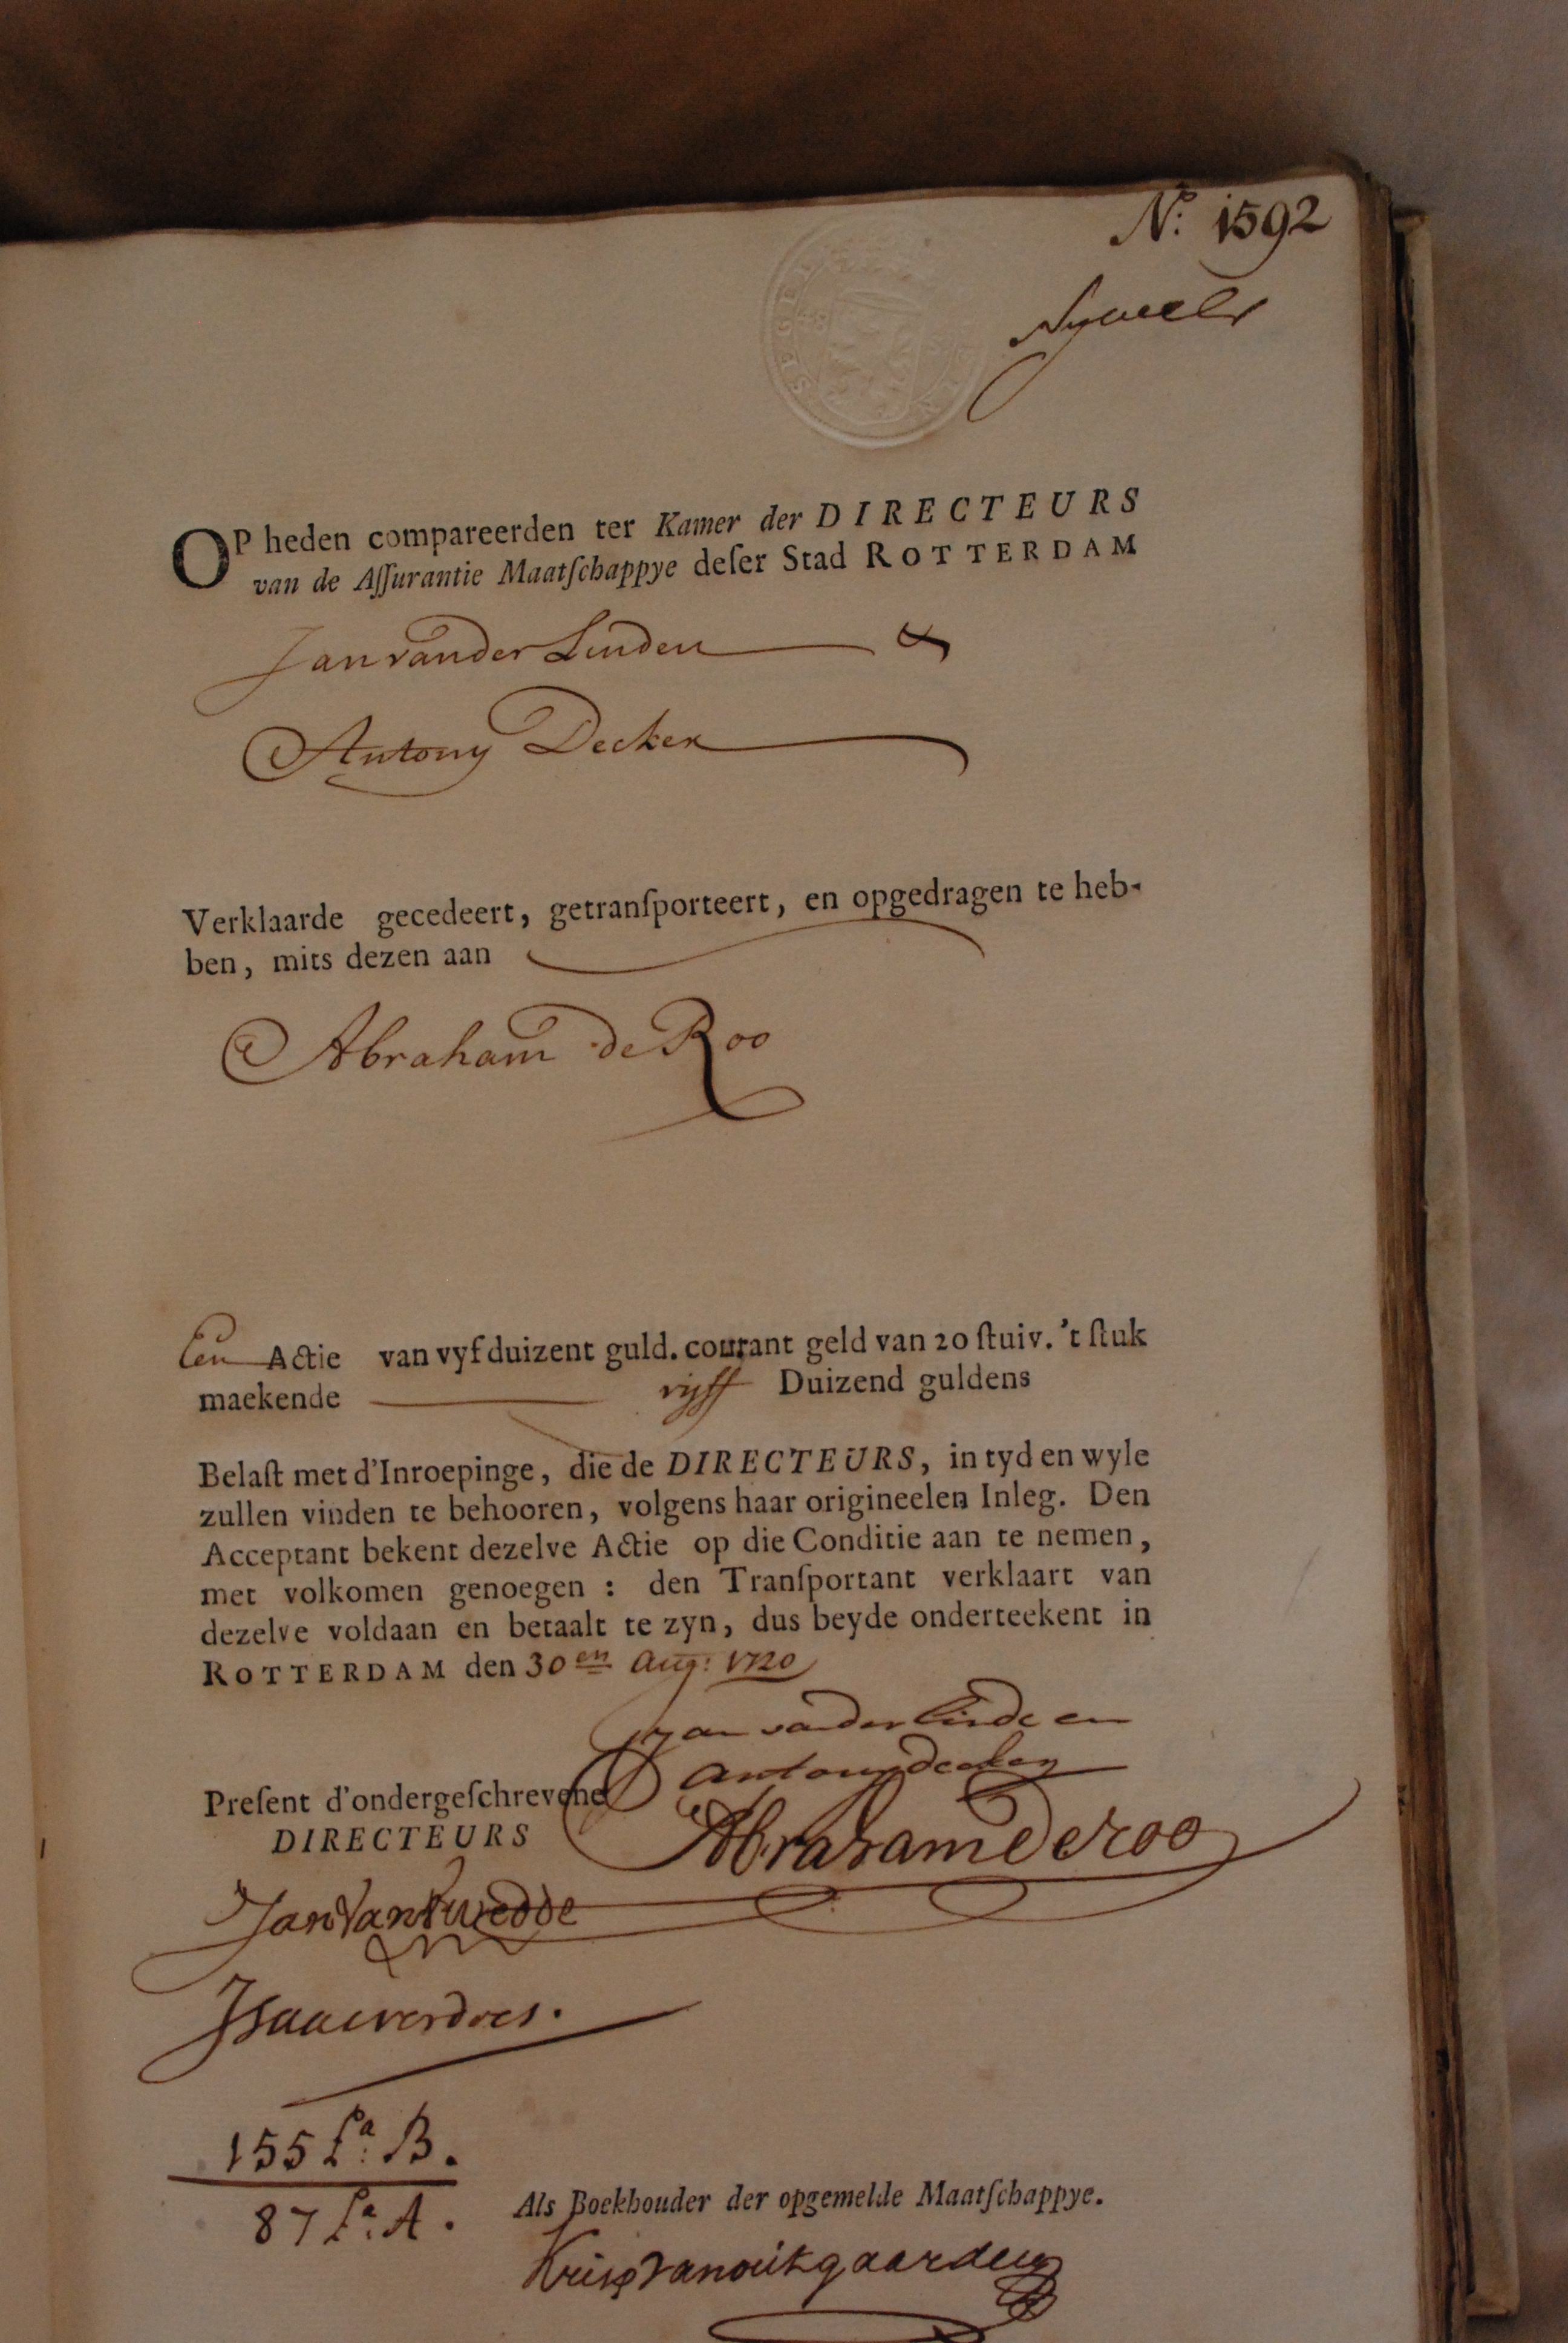 No: 1592
OP heden compareerden ter Kamer der DIRECTEURS
van de Aſſurantie Maatſchappye deſer Stad ROTTERDAM
Jan vander Linden &
Antony Decker
Verklaarde gecedeert, getranſporteert, en opgedragen te heb-
ben, mits dezen aan
Abraham de Roo
Een Actie van vyf duizent guld. courant geld van 20 ſtuiv. 't ſtuk
maekende vijff Duizend guldens
Belaſt met d'Inroepinge, die de DIRECTEURS, in tyd en wyle
zullen vinden te behooren, volgens haar origineelen Inleg. Den
Acceptant bekent dezelve Actie op die Conditie aan te nemen,
met volkomen genoegen: den Tranſportant verklaart van
dezelve voldaan en betaalt te zyn, dus beyde onderteekent in
ROTTERDAM den 30en Aug: 1720
Jan vander Linde en
Antony decker
Preſent d'ondergeſchrevene
DIRECTEURS
Abraham De roo
Jan Van
Isaac verdoes.
155 La: B.
87 La: A.
Als Boekhouder der opgemelde Maatſchappye.